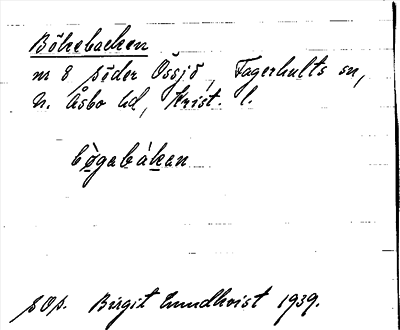 Bökebacken
nr 8 söder Össjö, Fagerhults sn,
N. Åsbo hd, Krist. l.
bø̀gabákan
sop. Birgit Lundkvist 1939.